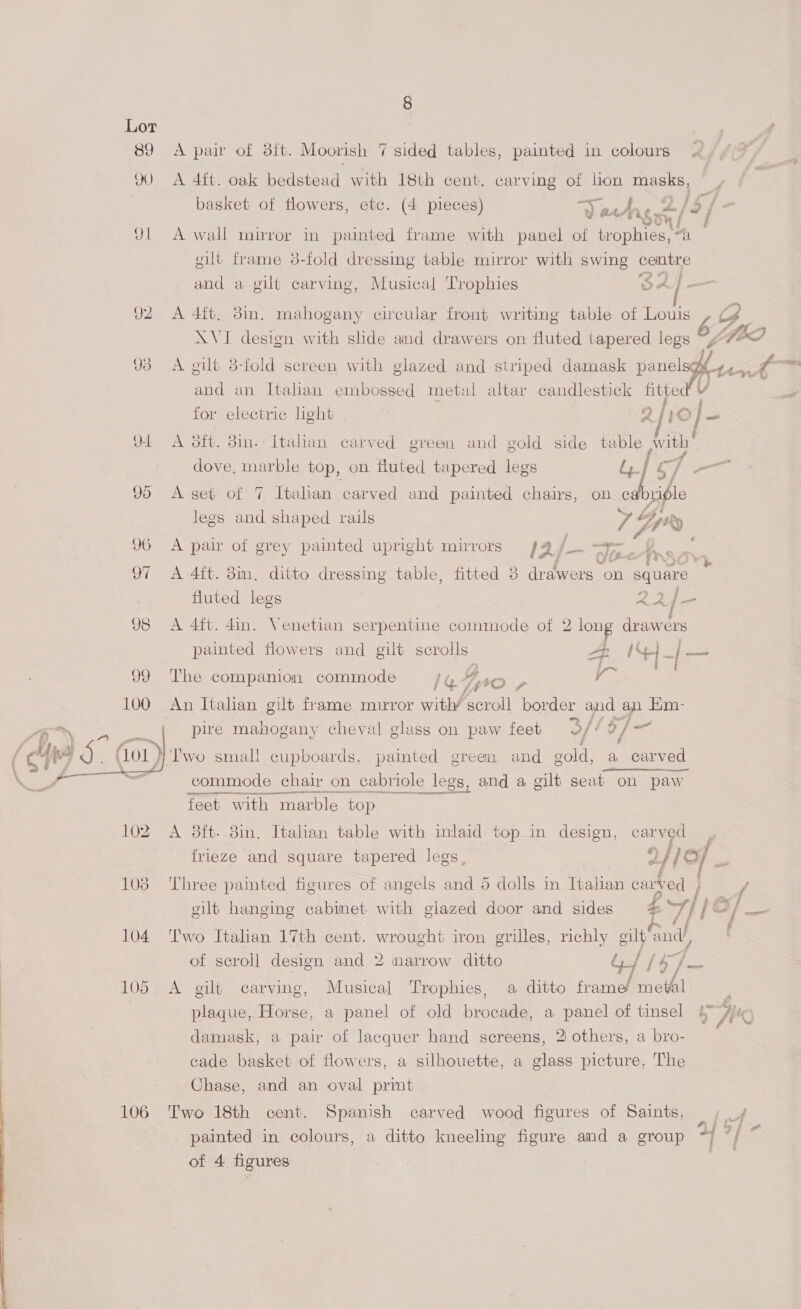 8
Lot
89 A pair of 3ft. Moorish 7 sided tables, painted in colours
90 A 4ft. oak bedstead with 18th cent. carving of lion masks,
basket of flowers, etc. (4 pieces) 2/5/-
91 A wall mirror in painted frame with panel of trophies, a
gilt frame 3-fold dressing table mirror with swing centre
and a gilt carving, Musical Trophies 32/-
92 A 4ft. 3in. mahogany circular front writing table of Louis
XVI design with slide and drawers on fluted tapered legs
93 A gilt 3-fold screen with glazed and striped damask panels
and an Italian embossed metal altar candlestick fitted
for electric light 2/10/-
94 A 3ft. 3in. Italian carved green and gold side table with
dove, marble top, on fluted tapered legs
95 A set of 7 Italian carved and painted chairs, on cabriole
legs and shaped rails 7 Gns
96 A pair of grey painted upright mirrors 12/-
97 A 4ft. 3in. ditto dressing table, fitted 3 drawers on square
fluted legs 22/-
98 A 4ft. 4in. Venetian serpentine commode of 2 long drawers
painted flowers and gilt scrolls
99 The companion commode
100 An Italian gilt frame mirror with scroll border and an Em-
pire mahogany cheval glass on paw feet
101 Two small cupboards, painted green and gold, a carved
commode chair on cabriole legs, and a gilt seat on paw
feet with marble top
102 A 3ft. 3in. Italian table with inlaid top in design, carved
frieze and square tapered legs. 2/10/-
103 Three painted figures of angels and 5 dolls in Italian carved
gilt hanging cabinet with glazed door and sides
104 Two Italian 17th cent. wrought iron grilles, richly gilt and
of scroll design and 2 narrow ditto
105 A gilt carving, Musical Trophies, a ditto frame metal
plaque, Horse, a panel of old brocade, a panel of tinsel
damask, a pair of lacquer hand screens, 2 others, a bro-
cade basket of flowers, a silhouette, a glass picture, The
Chase, and an oval print
106 Two 18th cent. Spanish carved wood figures of Saints,
painted in colours, a ditto kneeling figure and a group
of 4 figures